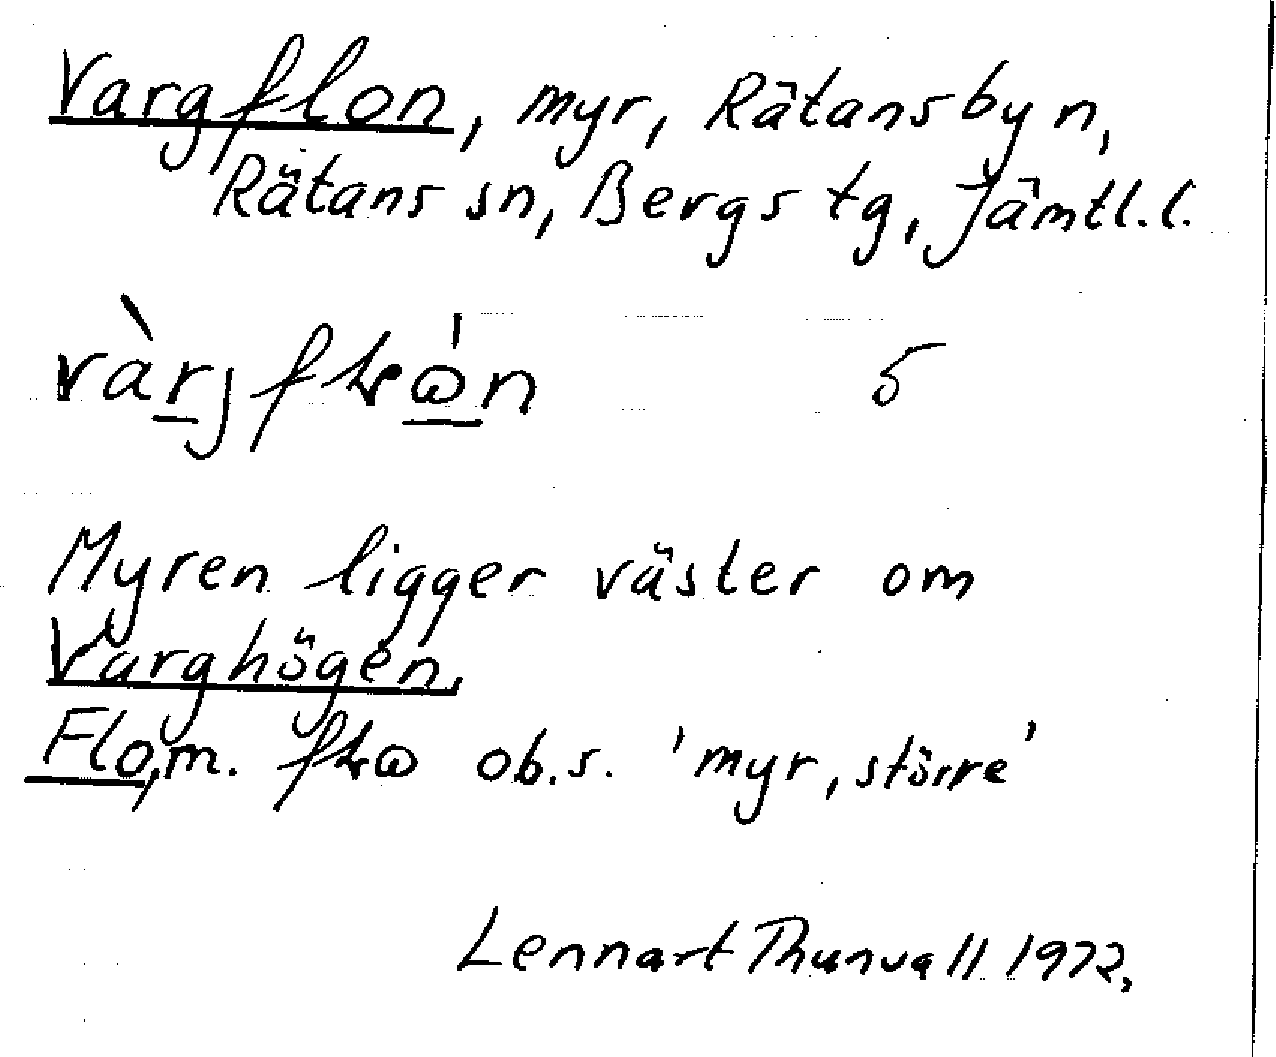 Vargflon, myr, Rätansbyn,
Rätans sn, Bergs tg, Jämtl.l.
Myren ligger väster om
Varghögen.
Flo, m. ob.s. 'myr, större'
Lennart Thunvall 1972.